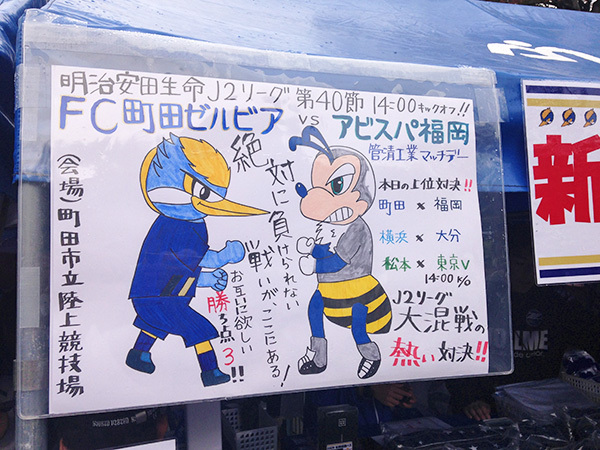 明治安田生命J2リーグ 第40節 14:00キックオフ!!
FC町田ゼルビア VS アビスパ福岡
管清工業マッチデー
(会場)町田市立陸上競技場
絶対に負けられない
"戦いがここにある!
お互いに欲しい
勝ち点3!!
本日の上位対決!!
町田 × 福岡
横浜 × 大分
松本 × 東京V
14:00 K/O
J2リーグ
大混戦の
熱い対決!!
新